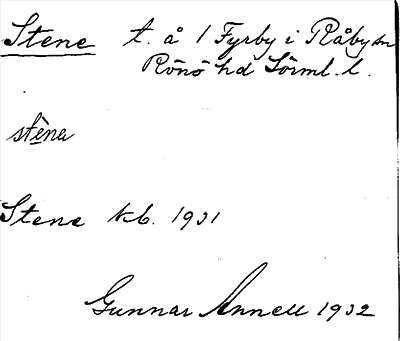 Stene t. å 1 Fyrby i Råby sn
Rönö hd Sörml. l.
stèna
Stene kb. 1931
Gunnar Annell 1932